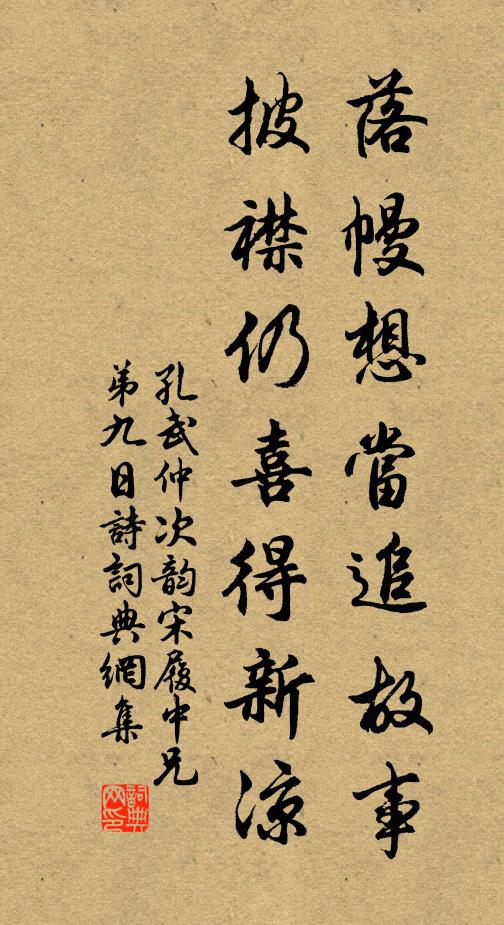 落幔想當追故事
披襟仍喜得新凉
孔武仲次韵宋履中兄
弟九日詩詞典網集
詞典
网印